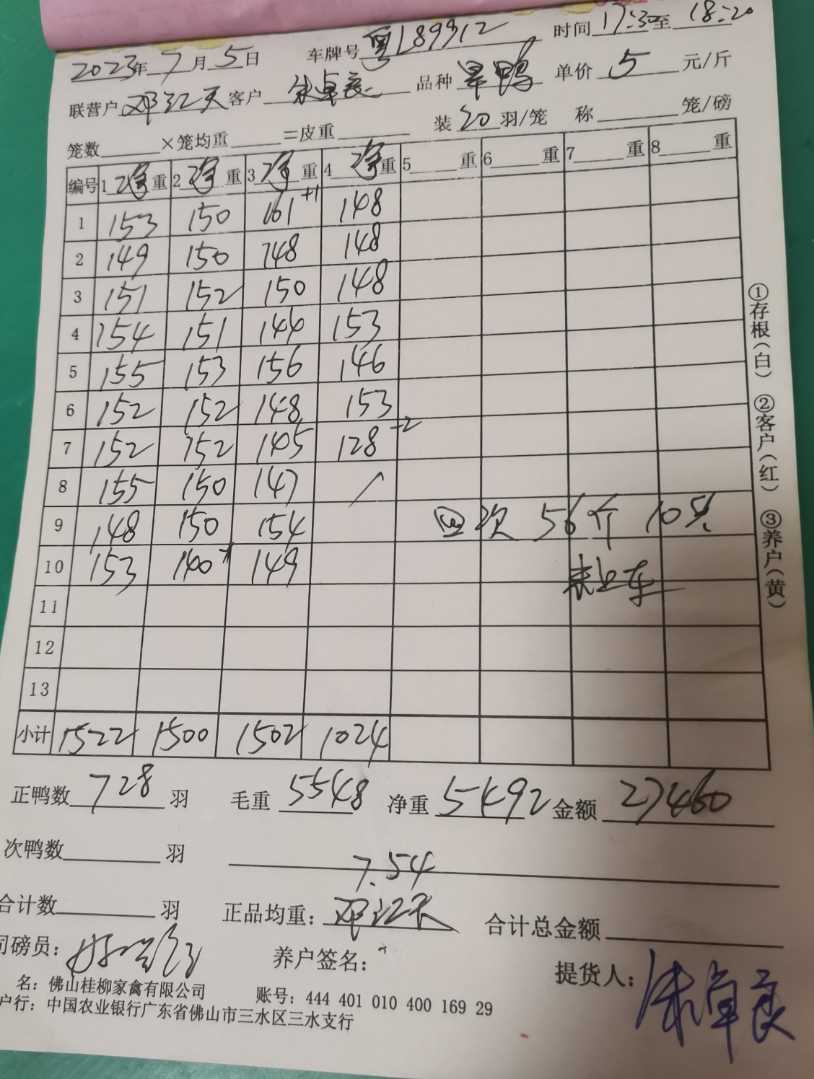 2023年7月5日 车牌号 粤L89912 时间 17:30至 18:20
联营户 邓江天 客户 朱卓良 品种 旱鸭 单价 5 元/斤
笼数 ×笼均重 =皮重 装 20 羽/笼 称 笼/磅
编号 1 净重 2 净重 3 净重 4 净重 5 重 6 重 7 重 8 重
1 153 150 161 +1 148
2 149 150 148 148
3 151 152 150 148
4 154 151 144 153
5 155 153 156 146
6 152 152 148 153
7 152 152 145 128 -2
8 155 150 147
9 148 150 154 次 56斤 10只
10 153 140 149 未上车
11
12
13
小计 1522 1500 1502 1024
正鸭数 728 羽 毛重 5548 净重 5492 金额 27460
次鸭数 羽 7.54
合计数 羽 正品均重: 邓江天 合计总金额
司磅员: 养户签名: 提货人: 朱卓良
名: 佛山桂柳家禽有限公司 账号: 444 401 010 400 169 29
户行: 中国农业银行广东省佛山市三水区三水支行
①存根(白) ②客户(红) ③养户(黄)